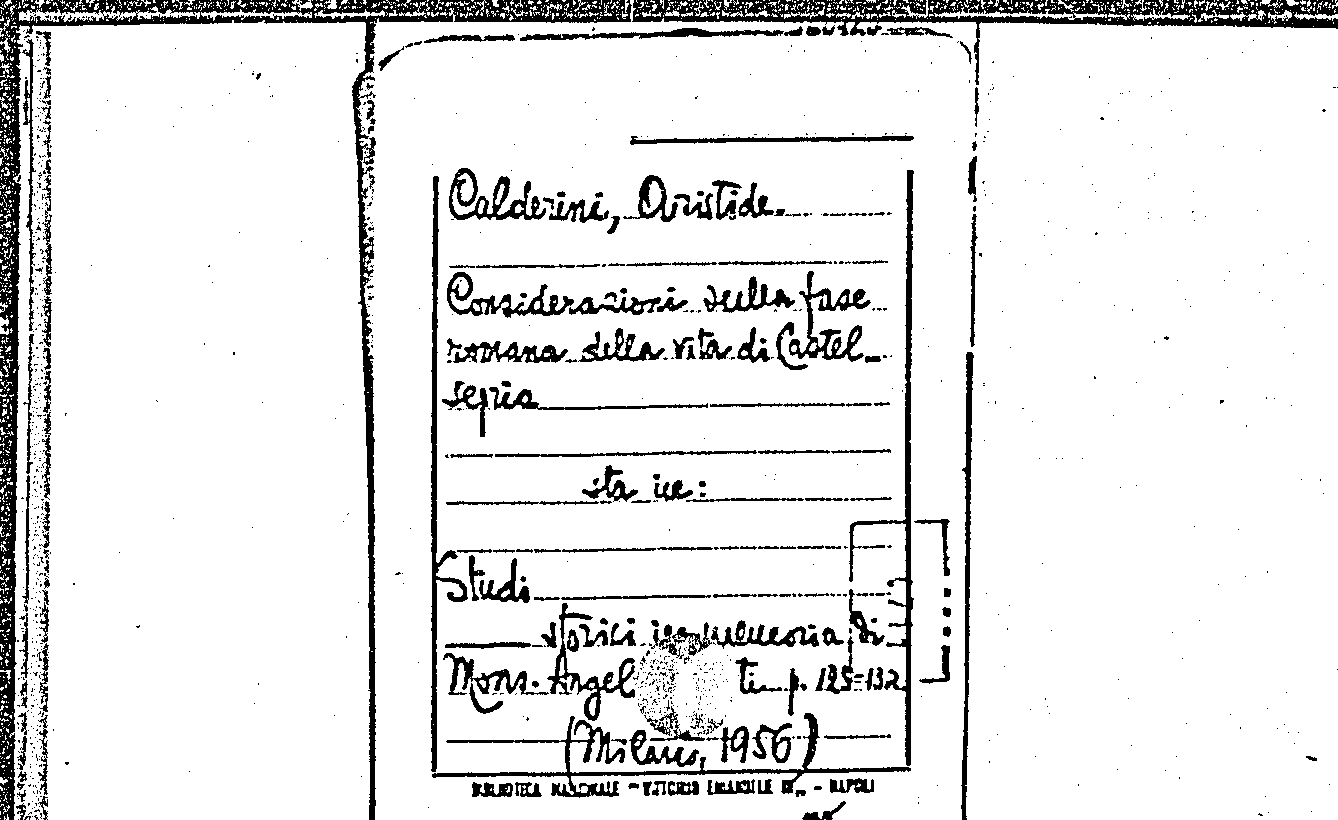 Calderini, Aristide.
Considerazioni sulla fase
romana della vita di Castel_
seprio
sta in:
Studi
storici in memoria di
Mons. Angel ti p. 125-132
(Milano, 1956)
BIBLIOTECA NAZIONALE "VITTORIO EMANUELE III" - NAPOLI